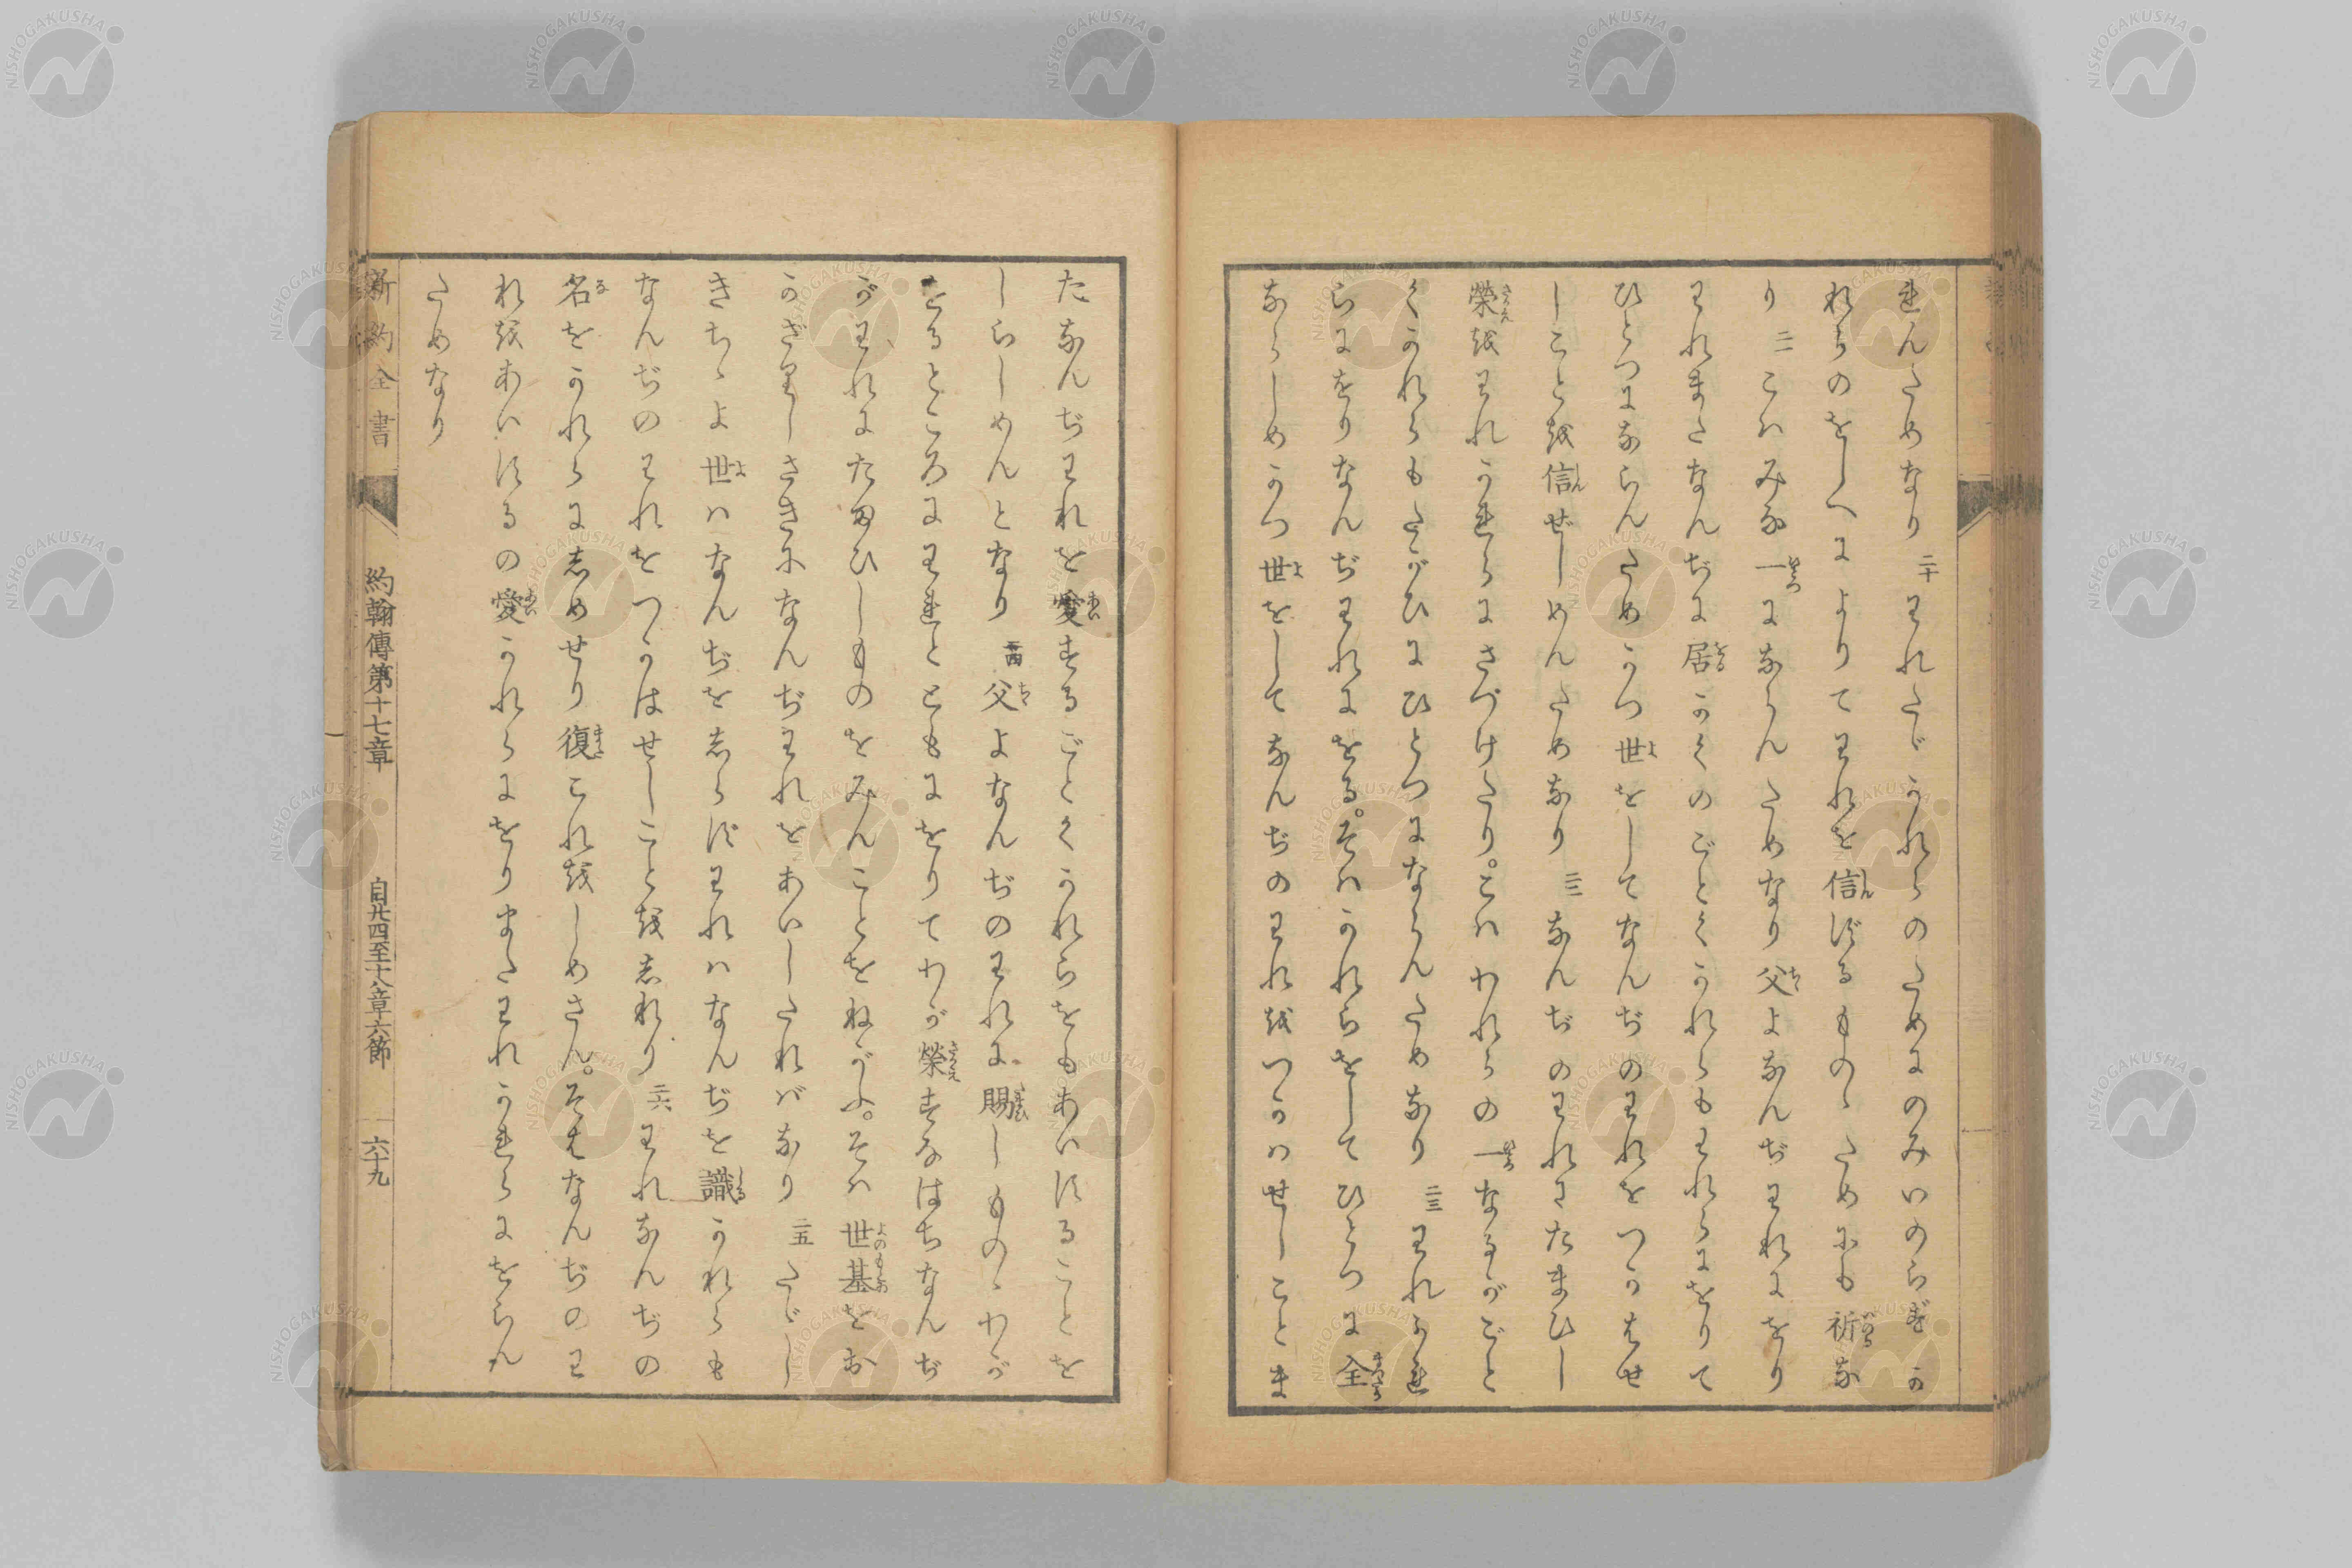 れんためなり 二十 われたゞかれらのためにのみいのらずか
れらのをしへによりてわれを信ずるものゝためにも祈な
り 二一 こハみな一にならんためなり父よなんぢわれにをり
われまたなんぢに居かくのごとくかれらもわれらにをりて
ひとつにならんためかつ世をしてなんぢのわれをつかはせ
しことを信ぜしめんためなり 二二 なんぢのわれにたまひし
榮をわれかれらにさづけたり。こハわれらの一なるがごと
くかれらもたがひにひとつにならんためなり 二三 われかれ
らにをりなんぢわれにをる。そハかれらをしてひとつに全
ならしめかつ世をしてなんぢのわれをつかハせしことま
たなんぢわれを愛するごとくかれらをもあいすることを
しらしめんとなり 二四 父よなんぢのわれに賜しものゝわが
をるところにわれとともにをりてわが榮すなはちなんぢ
がわれにたまひしものをみんことをねがふ。そハ世基をお
かざりしさきになんぢわれをあいしたればなり 二五 たゞし
きちゝよ世ハなんぢをしらずわれハなんぢを識かれらも
なんぢのわれをつかはせしことをしれり 二六 われなんぢの
名をかれらにしめせり復これをしめさん。そはなんぢのわ
れをあいするの愛かれらにをりまたわれかれらにをらん
ためなり
新約全書 約翰傳第十七章 自廿四至十八章六節 六十九